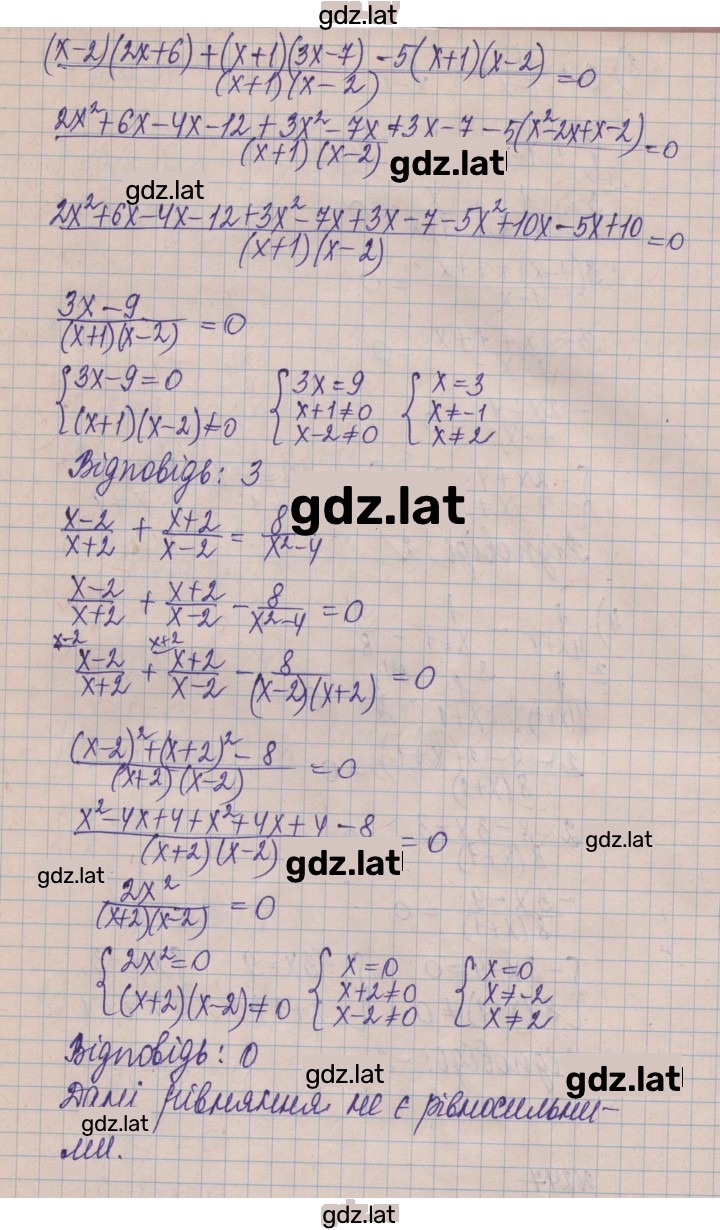 gdz.lat
(x-2)(2x+6)+(x+1)(3x-7)-5(x+1)(x-2)/(x+1)(x-2) =0
2x²+6x-4x-12+3x²-7x+3x-7-5(x²-2x+x-2)/(x+1)(x-2) =0
gdz.lat
gdz.lat
2x²+6x-4x-12+3x²-7x+3x-7-5x²+10x-5x+10/(x+1)(x-2) =0
3x-9/(x+1)(x-2) =0
{3x-9=0 {3x=9 {x=3
(x+1)(x-2)≠0 x+1≠0 x≠-1
x-2≠0 x≠2
Відповідь: 3
gdz.lat
x-2/x+2 + x+2/x-2 = 8/x²-4
x-2/x+2 + x+2/x-2 - 8/x²-4 =0
x-2 x+2
x-2/x+2 + x+2/x-2 - 8/(x-2)(x+2) =0
(x-2)²+(x+2)²-8/(x+2)(x-2) =0
x²-4x+4+x²+4x+4-8/(x+2)(x-2) =0
gdz.lat
gdz.lat
gdz.lat
2x²/(x+2)(x-2) =0
{2x²=0 {x=0 {x=0
(x+2)(x-2)≠0 x+2≠0 x≠-2
x-2≠0 x≠2
Відповідь: 0
gdz.lat
gdz.lat
Дані рівняння не є рівносильни-
gdz.lat
ми.
gdz.lat